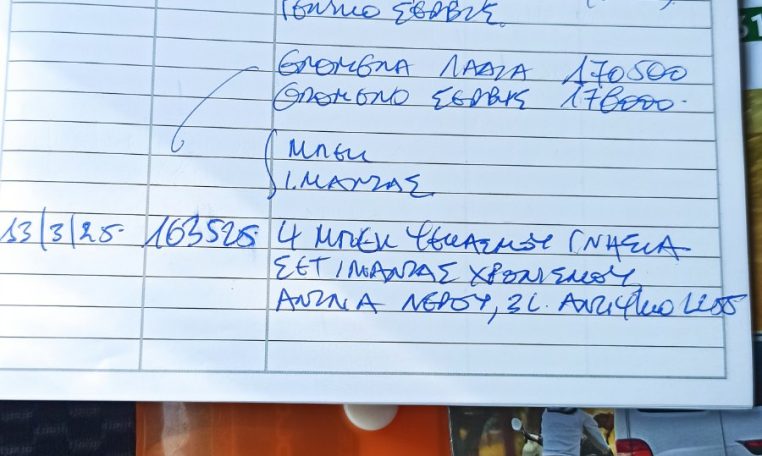 ΓΕΝΙΚΟ ΣΕΡΒΙΣ.
ΕΠΟΜΕΝΑ ΛΑΔΙΑ 170500
ΕΠΟΜΕΝΟ ΣΕΡΒΙΣ 178000.
ΜΠΕΚ
Ι.ΜΑΝΤΑΣ
13/3/25. 163525 4 ΜΠΕΚ ΨΕΚΑΣΜΟΥ ΓΝΗΣΙΑ
ΣΕΤ ΙΜΑΝΤΑΣ ΧΡΟΝΙΣΜΟΥ,
ΑΝΤΛΙΑ ΝΕΡΟΥ, 3L.